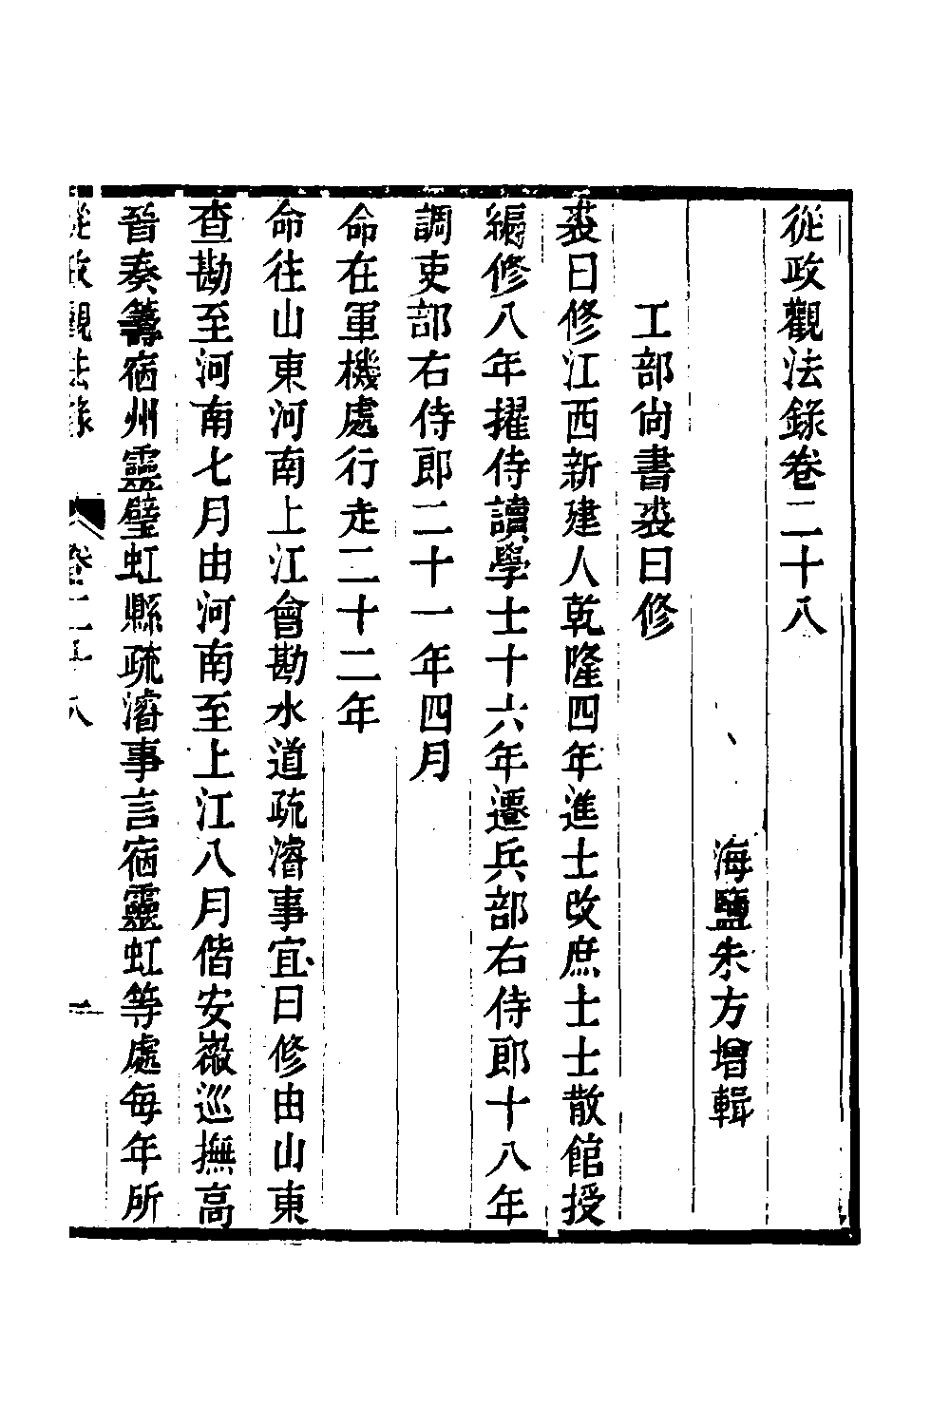 從政觀法錄卷二十八
海鹽朱方增輯
工部尙書裘曰修
裘曰修江西新建人乾隆四年進士改庶士士散館授
編修八年擢侍讀學士十六年遷兵部右侍郎十八年
調吏部右侍郎二十一年四月
命在軍機處行走二十二年
命往山東河南上江會勘水道疏濬事宜曰修由山東
查勘至河南七月由河南至上江八月偕安徽巡撫高
晉奏籌宿州靈璧虹縣疏濬事言宿靈虹等處每年所
從政觀法錄 卷二十八 一